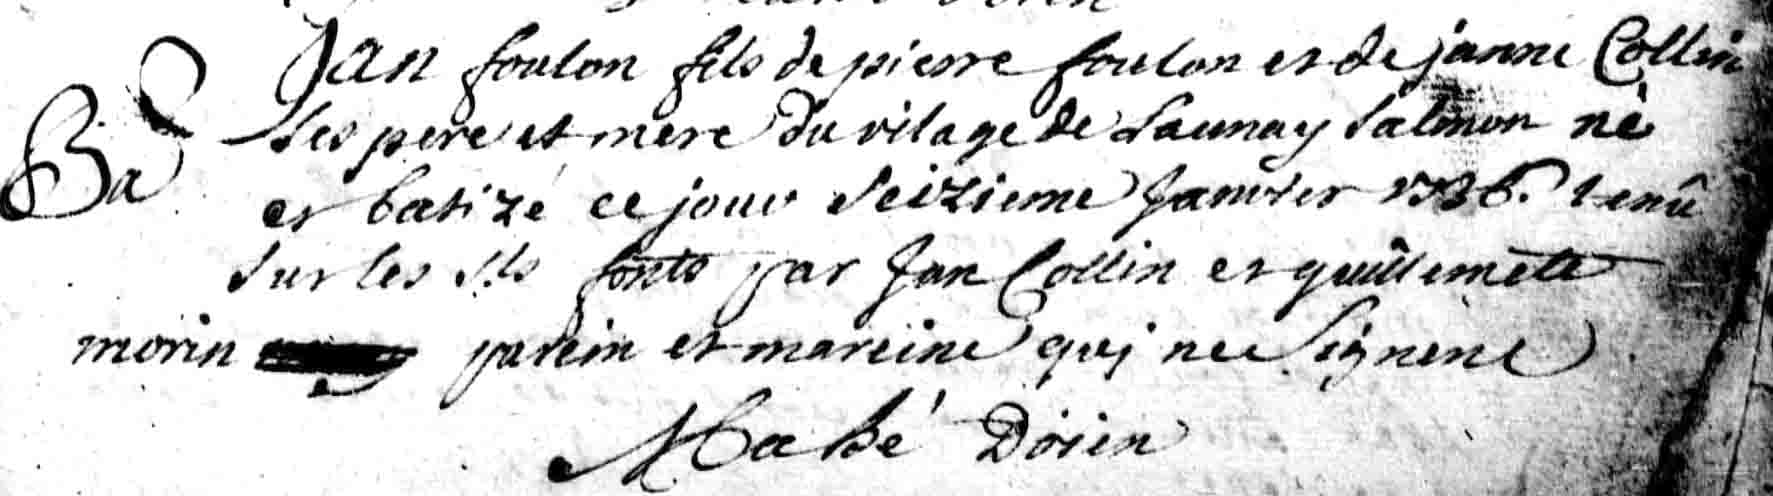 Jan foulon fils de pierre foulon et de janne Collin
Ba
ses pere et mere du vilage de Launay Salmon né
et batizé ce jour seizieme Janvier 1736. tenû
sur les sts fonts par Jan Collin et guillemete
morin parein et mareine quj ne signent
Mahé